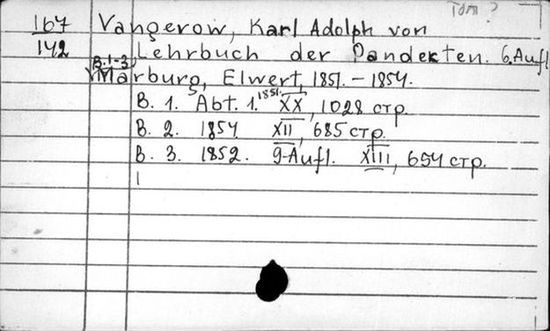 Том?
167 Vangerow, Karl Adolph von
142 Lehrbuch der Pandekten. 6. Aufl
B. 1-3,
Marburg, Elwert, 1851. - 1854.
B. 1. Abt. 1. 1851. XX, 1028 стр.
B. 2. 1854 XII, 685 стр.
B. 3. 1852. 9-Aufl. XIII, 654 стр.